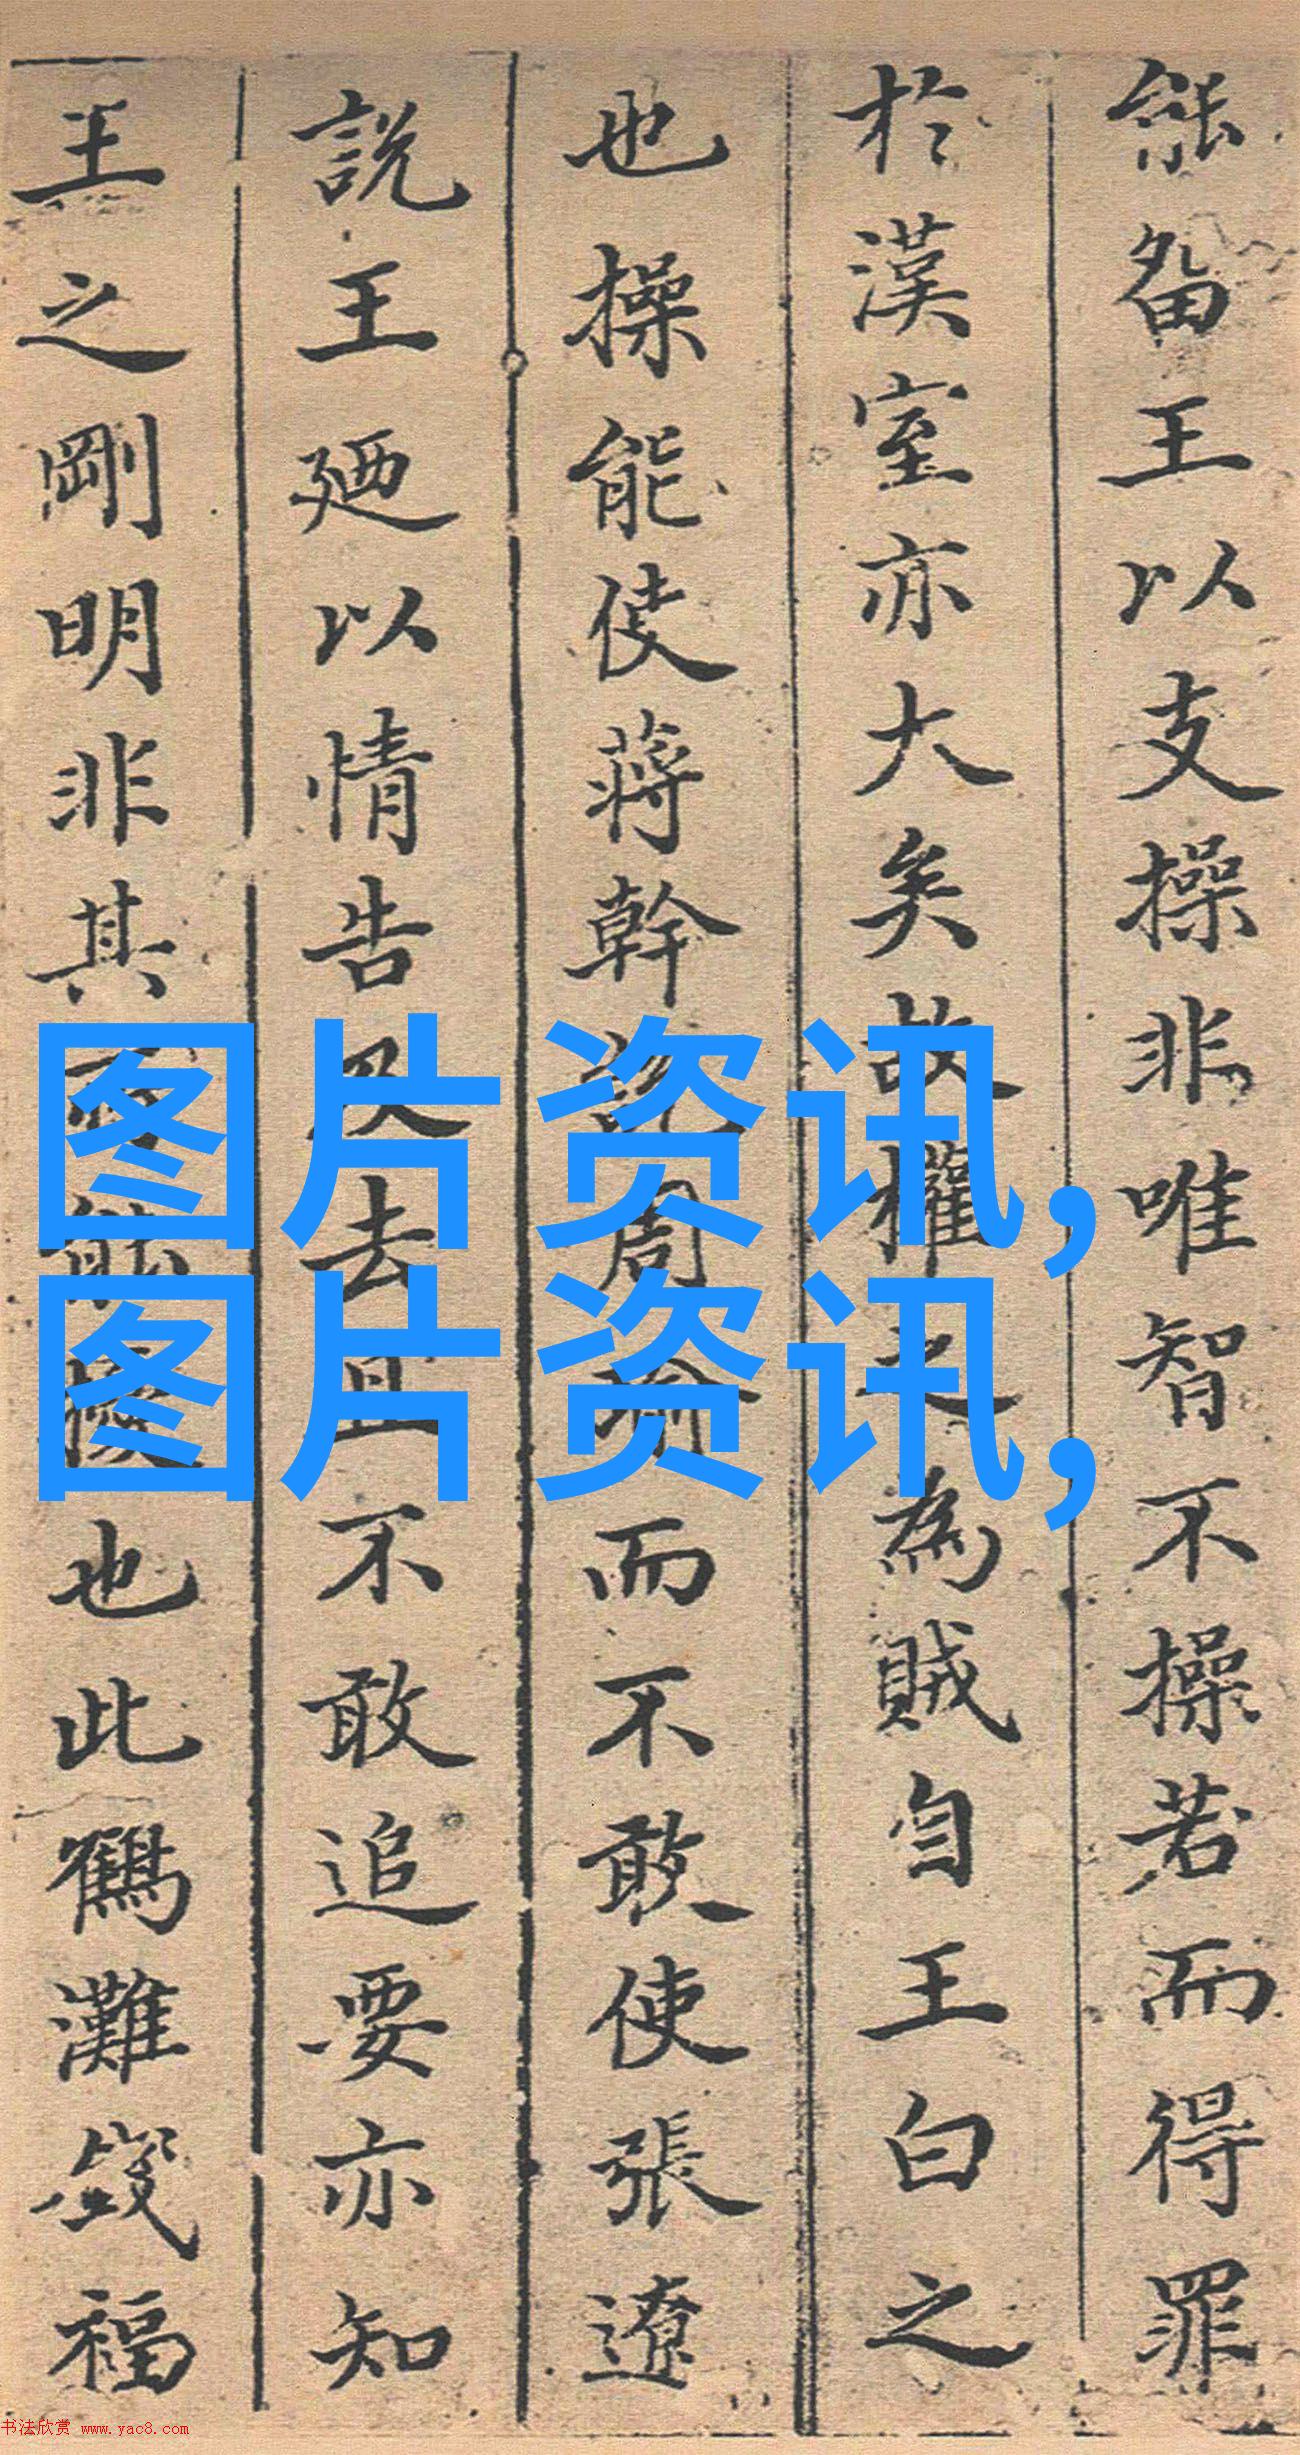 能留王以支操非唯智不操若而得罪
於漢室亦大矣故權之為賊自王白之
也操能使蔣幹說周瑜而不敢使張遼
說王廼以情告又去且不敢追要亦知
王之剛明非其所能擾也此鶴灘錢福
图片资讯,
图片资讯,
书法欣赏 www.yac8.com